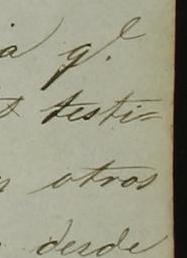 a q.e
testi=
otros
desde